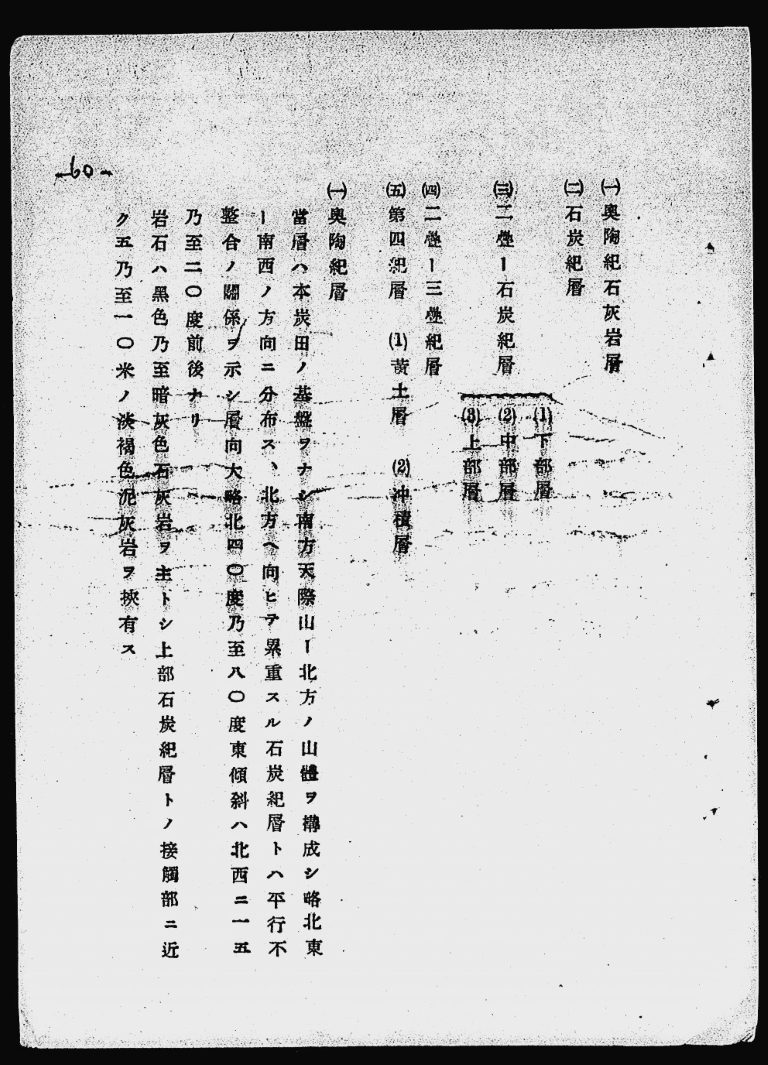 -60-
㈠奧陶紀石灰岩層
㈡石炭紀層
㈢二疊ー石炭紀層
⑴下部層
⑵中部層
⑶上部層
㈣二疊ー三疊紀層
㈤第四紀層 ⑴黃土層 ⑵沖積層
㈠奧陶紀層
當層ハ本炭田ノ基盤ヲナシ南方天際山ー北方ノ山體ヲ構成シ略北東
ー南西ノ方向ニ分布ス、北方ヘ向ヒテ累重スル石炭紀層トハ平行不
整合ノ關係ヲ示シ層向大略北四〇度乃至八〇度東傾斜ハ北西ニ一五
乃至二〇度前後ナリ
岩石ハ黑色乃至暗灰色石灰岩ヲ主トシ上部石炭紀層トノ接觸部ニ近
ク五乃至一〇米ノ淡褐色泥灰岩ヲ挾有ス